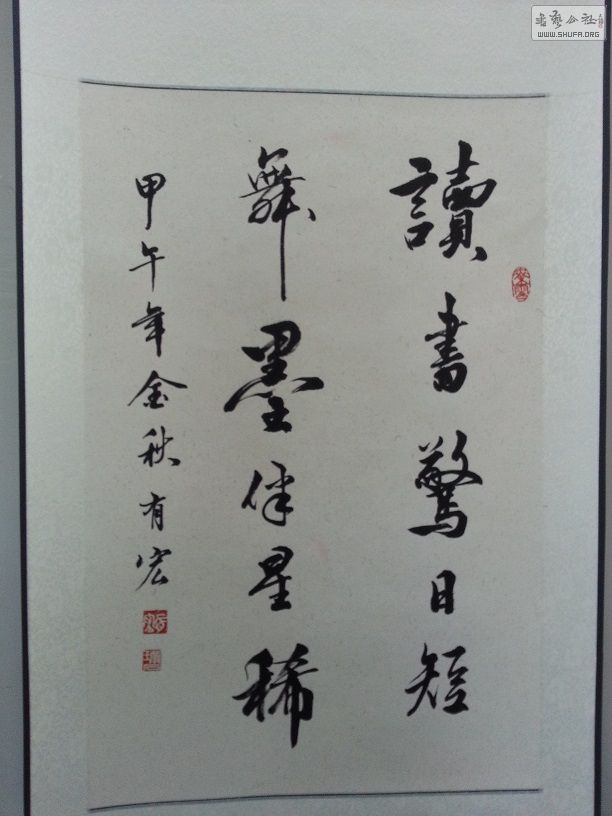 讀書驚日短
舞墨伴星稀
甲午年金秋有宏
書藝公社
WWW.SHUFA.ORG